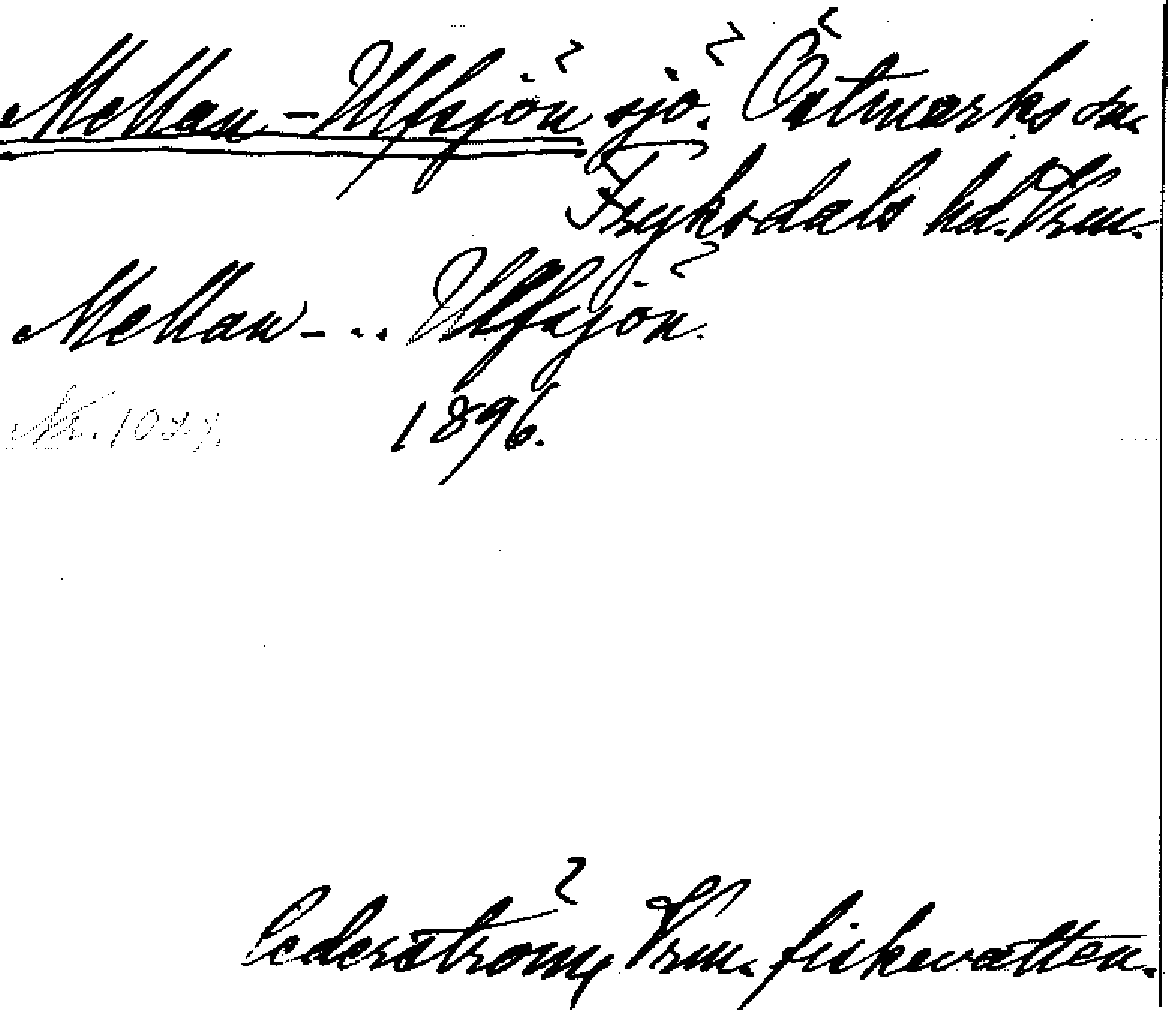 Mellan-Ulfsjön sjö. Östmarks sn.
Fryksdals hd. Vrm.
Mellan- .. Ulfsjön.
1896.
Cederström, Vrm. fiskevatten.